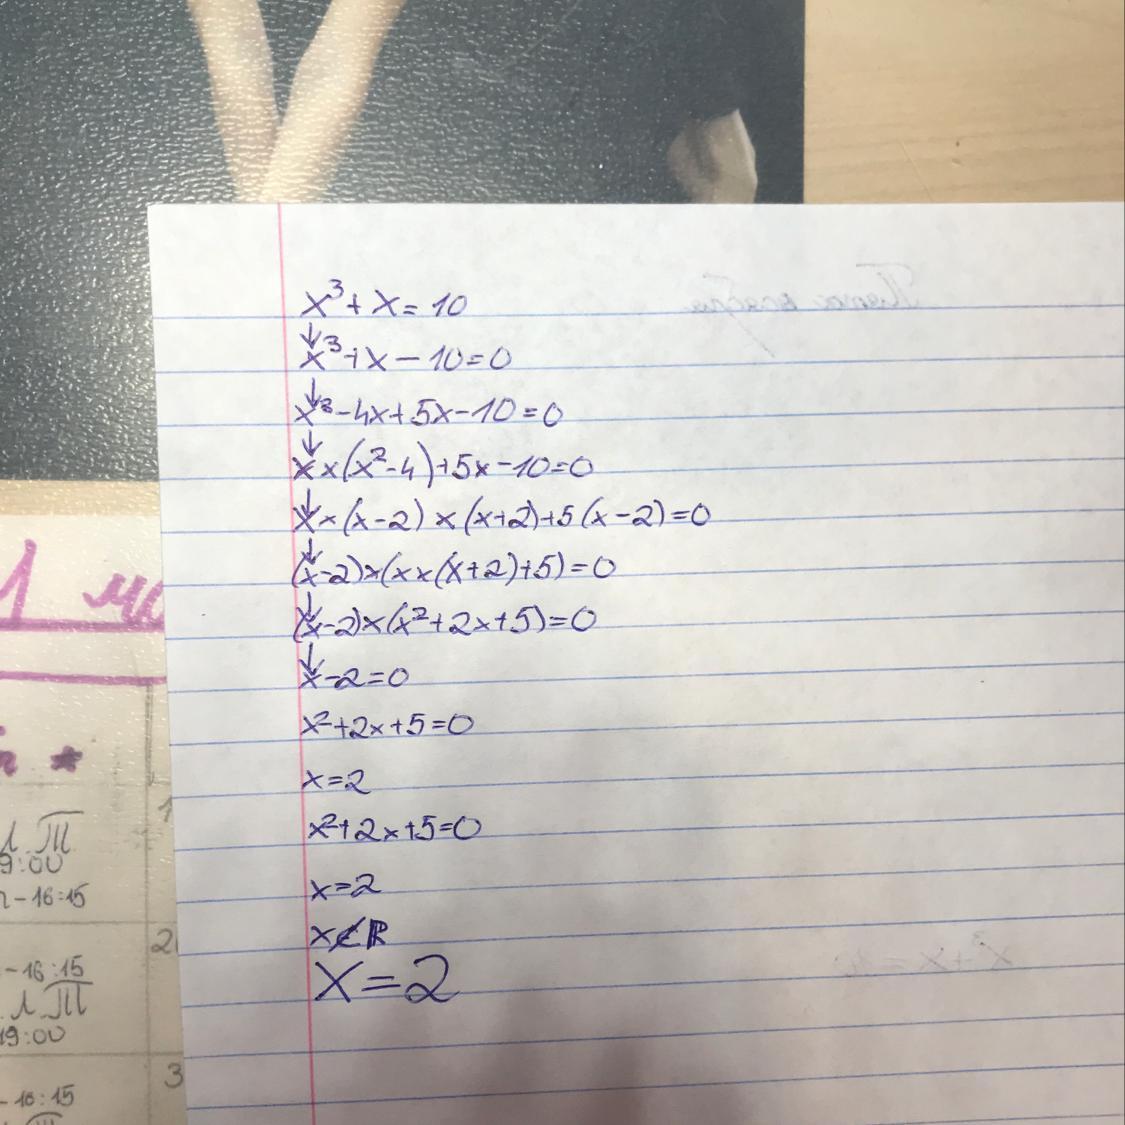 x³+x=10
x³+x-10=0
x³-4x+5x-10=0
x×(x²-4)+5x-10=0
x×(x-2)×(x+2)+5(x-2)=0
(x-2)×(x×(x+2)+5)=0
(x-2)×(x²+2x+5)=0
x-2=0
x²+2x+5=0
x=2
x²+2x+5=0
x=2
x∉ℝ
x=2
1
9:00
-16:15
2
-16:15
19:00
3
-16:15